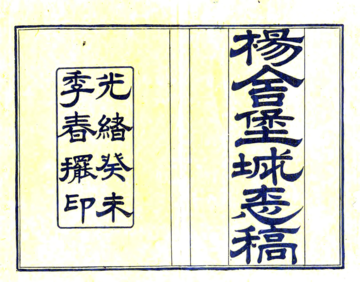 楊舍堡城志稿
光緖癸未
季春擺印